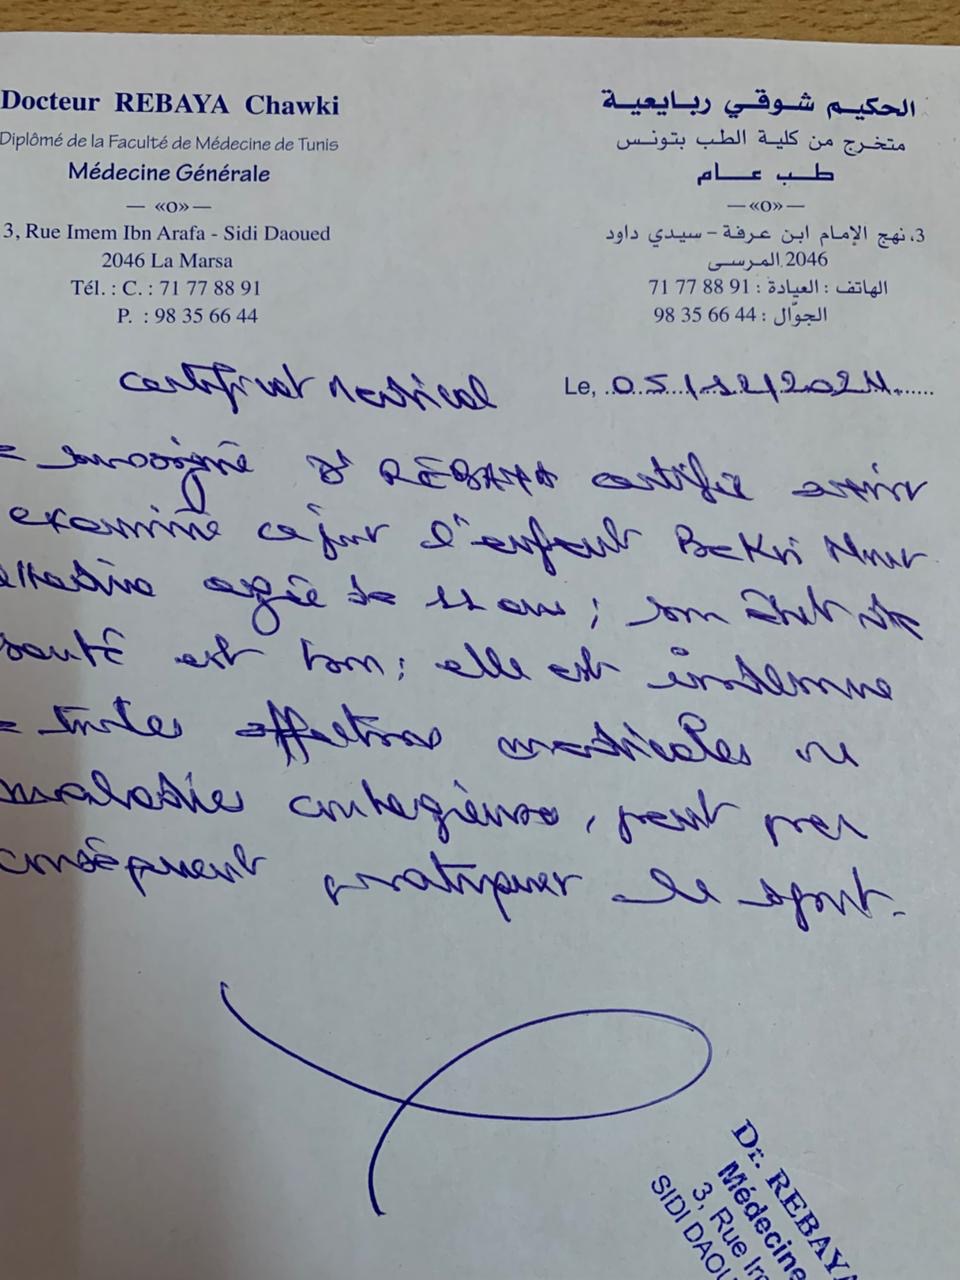 Docteur REBAYA Chawki
Diplômé de la Faculté de Médecine de Tunis
Médecine Générale
— «O» —
3, Rue Imem Ibn Arafa - Sidi Daoued
2046 La Marsa
Tél. : C. : 71 77 88 91
P. : 98 35 66 44
الحكيم شوقي ربايعية
متخرج من كلية الطب بتونس
طب عام
— «O» —
3، نهج الإمام ابن عرفة - سيدي داود
2046 المرسى
الهاتف : العيادة : 91 88 77 71
الجوّال : 44 66 35 98
certificat medical
Le, 05/12/2024
soussigné Dr REBAYA certifie avoir
examiné ce jour l'enfant Bekri Nour
agée de 11 ans ; son état de
santé est bon ; elle est indemne
toutes affections medicales ou
maladies contagieuses, peut par
conséquent pratiquer le sport.
Dr. REBAYA
Médecine
3, Rue Im
SIDI DAOU